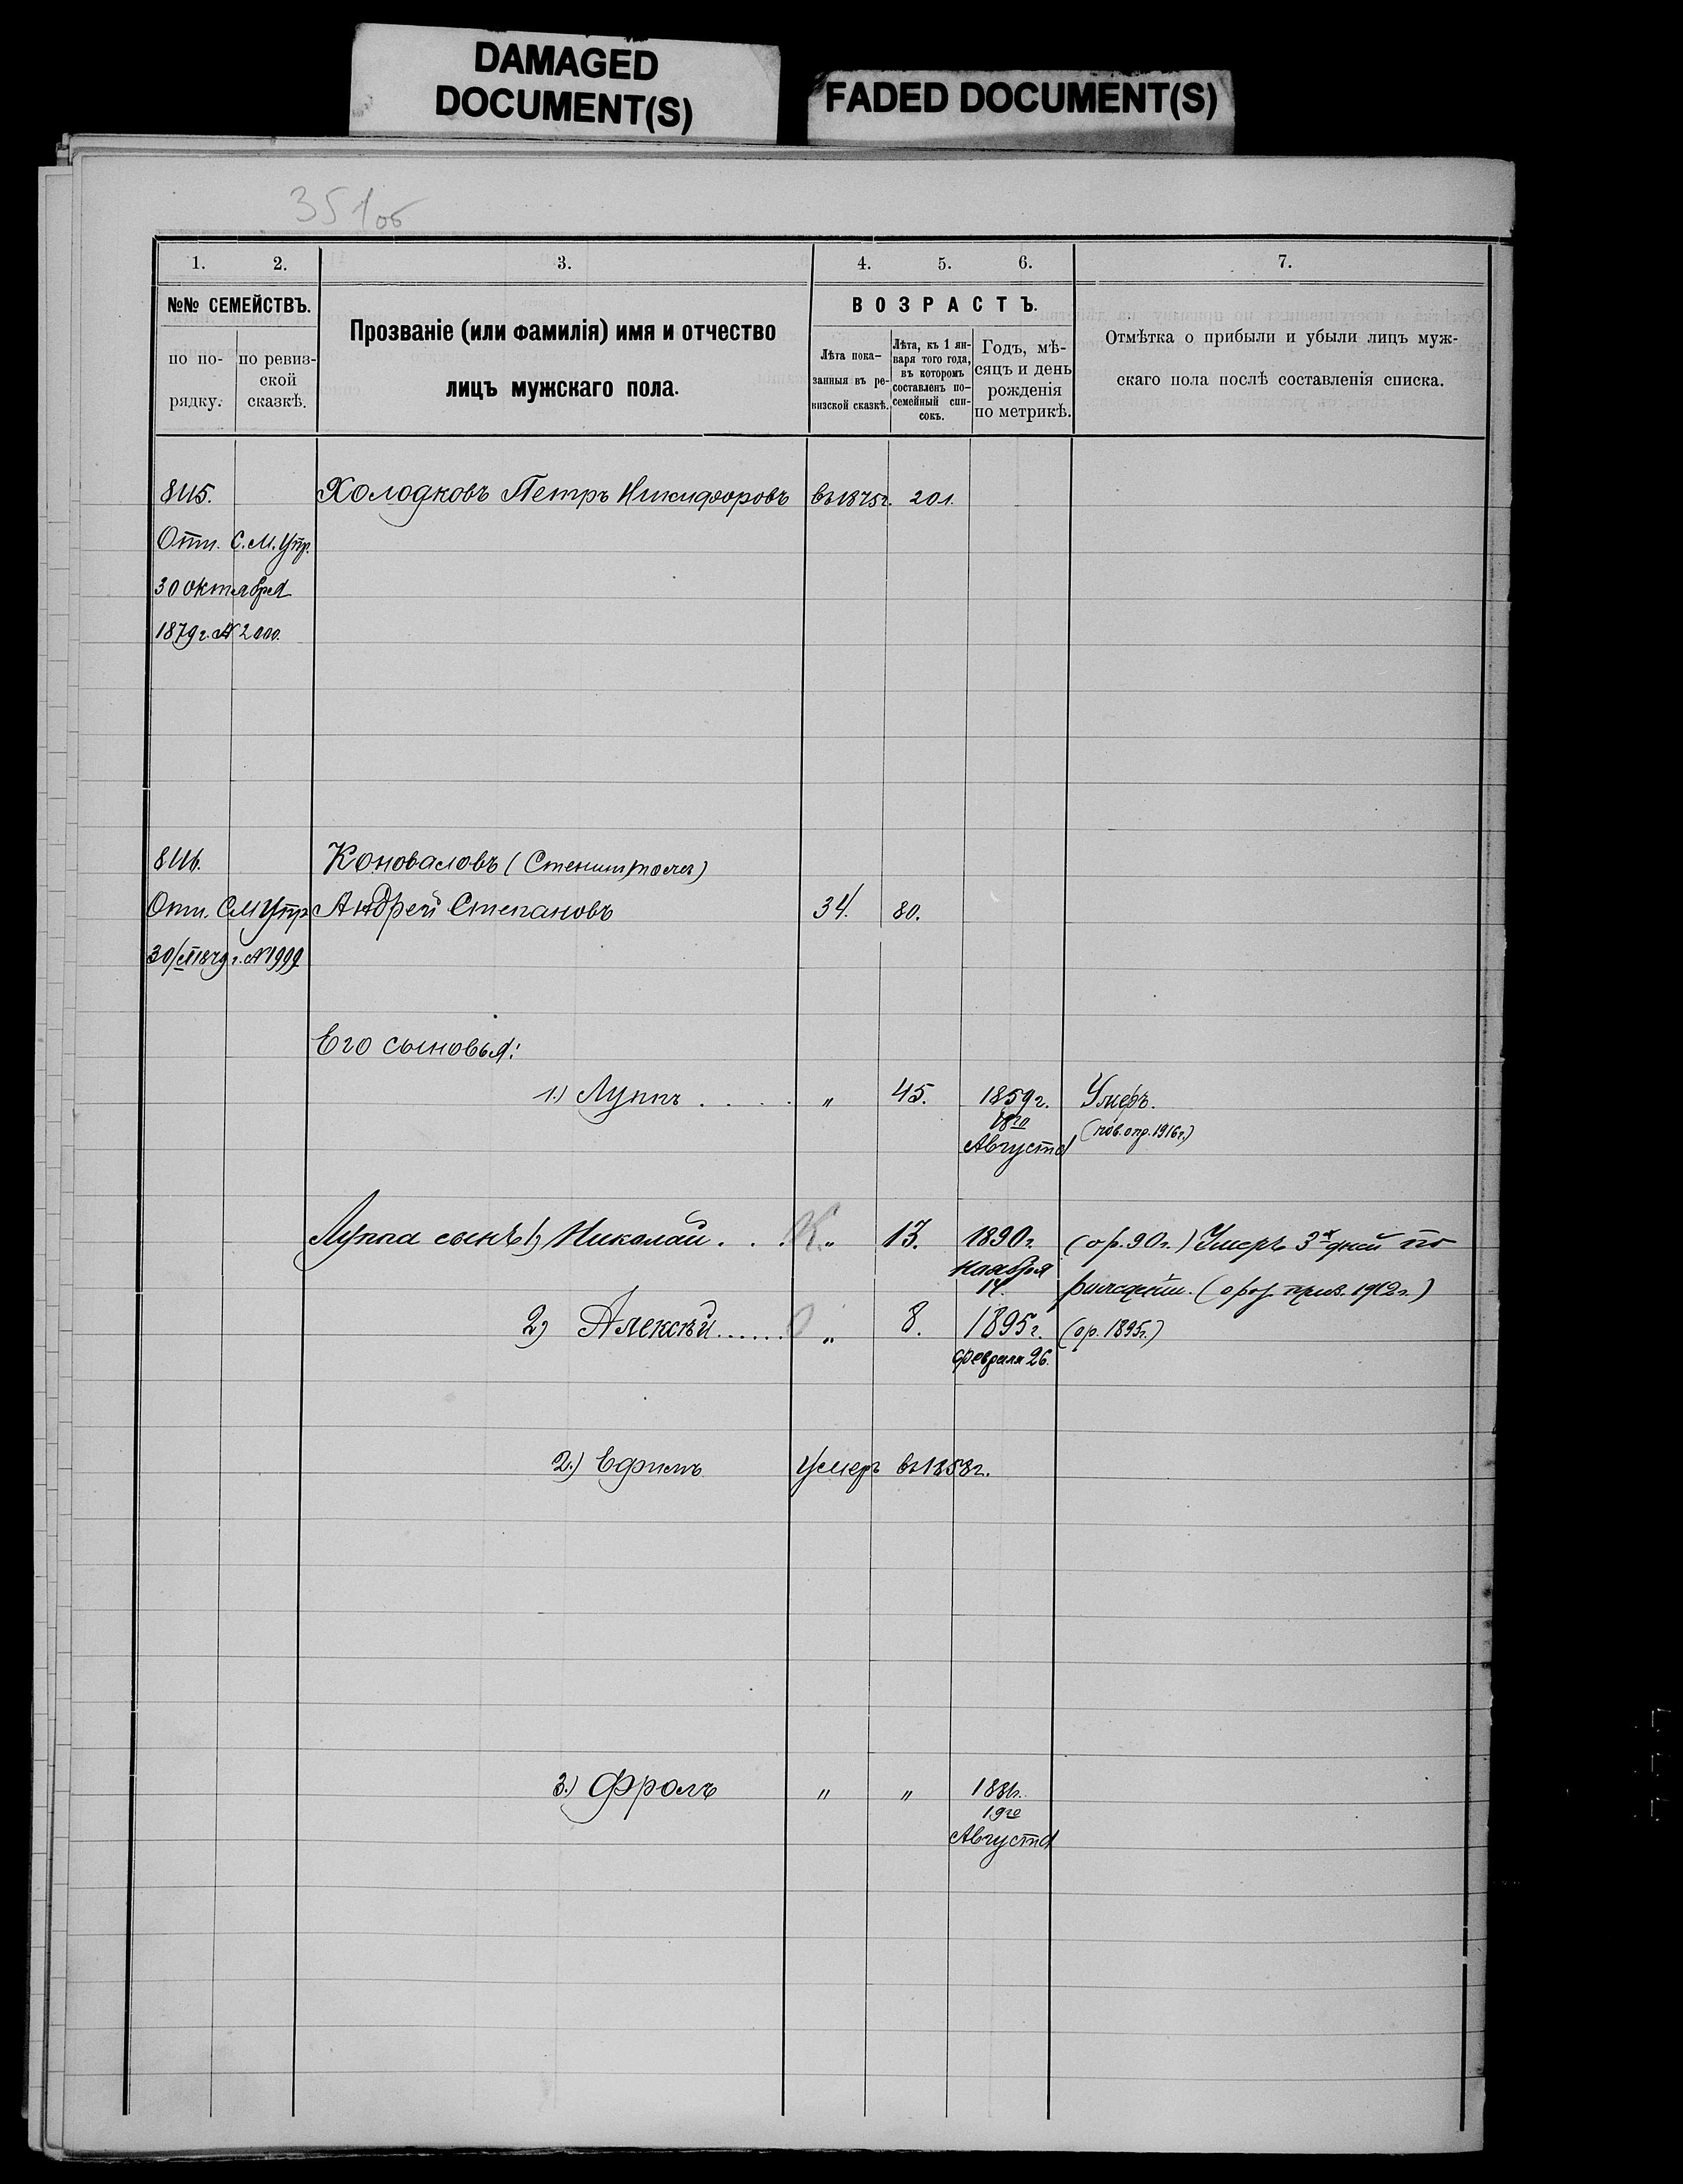 DAMAGED
DOCUMENT(S)
FADED DOCUMENT(S)
351об
1. 2. 3. 4. 5. 6. 7.
№№ СЕМЕЙСТВЪ.
по по-
рядку.
по ревиз-
ской
сказкѣ.
Прозваніе (или фамилія) имя и отчество
лицъ мужскаго пола.
ВОЗРАСТЪ.
Лѣта пока-
занныя въ ре-
визской сказкѣ.
Лѣта, къ 1 ян-
варя того года,
въ которомъ
составленъ по-
семейный спи-
сокъ.
Годъ, мѣ-
сяцъ и день
рожденія
по метрикѣ.
Отмѣтка о прибыли и убыли лицъ муж-
скаго пола послѣ составленія списка.
Холодковъ Петръ Никифоровъ въ 1875г.
Отн. С.М.Упр.
30 октября
1879 г. № 2000.
Коноваловъ
Отн. СМУпр Андрей Степановъ 34. 80.
г. №1999
Его сыновья:
1.) Луппъ . . . . . „ 45. 1859г. Умеръ.
18го
Августа
(пов. опр. 1916г.)
Луппа сынъ 1) Николай . . . К. „ 13. 1890г. (ор. 90г.) Умеръ 3х дней по
ноября
14.
рожденіи. 1912г.)
2) Алексѣй...... 0 „ 8. 1895г. (ор. 1895г.)
февраля 26.
2.) Ефимъ Умеръ въ 1858г.
3.) Фролъ „ „
19го
Августа